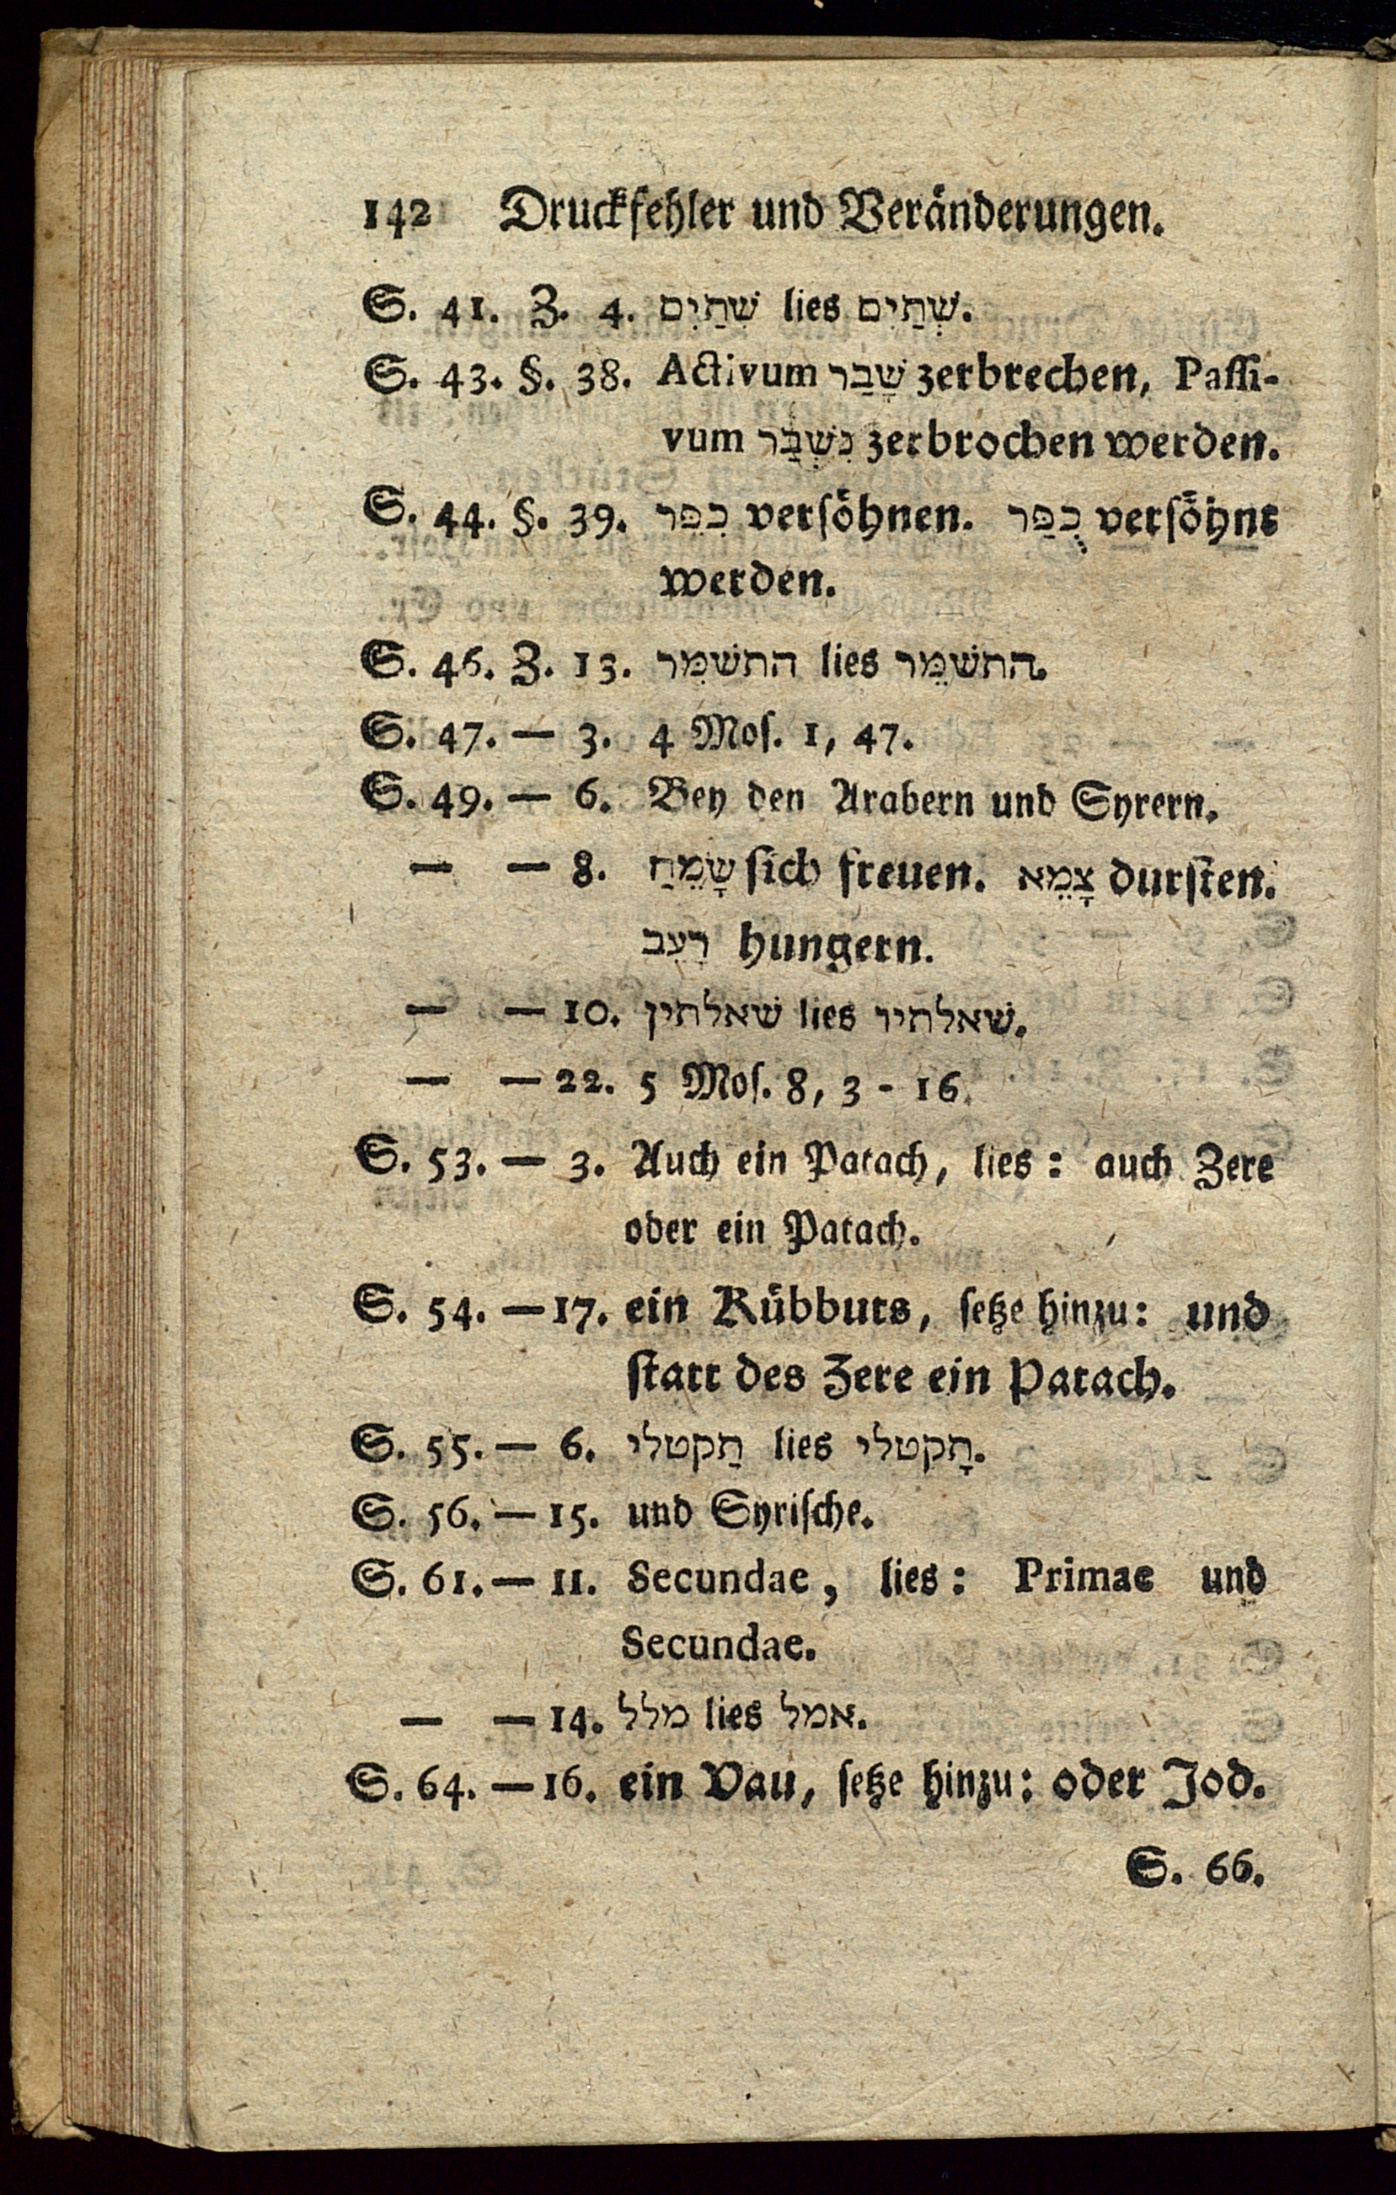 142 Druckfehler und Veränderungen.
S. 41. Z. 4. שִׁתַּיִם lies שְׁתַּיִם.
S. 43. §. 38. Activum שָׁבַר zerbrechen, Paſſi-
vum נִשְׁבַּר zerbrochen werden.
S. 44. §. 39. כִּפֵּר verſöhnen. כֻּפַּר verſöhnt
werden.
S. 46. Z. 13. התשׁמִּר lies התשׁמֵּר.
S. 47. — 3. 4 Moſ. 1, 47.
S. 49. — 6. Bey den Arabern und Syrern.
— — 8. שָׂמֵחַ ſich freuen. צָמֵא durſten.
רָעֵב hungern.
— — 10. שׁאלתין lies שׁאלתיו.
— — 22. 5 Moſ. 8, 3 - 16.
S. 53. — 3. Auch ein Patach, lies: auch Zere
oder ein Patach.
S. 54. — 17. ein Kübbuts, ſetze hinzu: und
ſtatt des Zere ein Patach.
S. 55. — 6. תַקטלי lies תָקטלי.
S. 56. — 15. und Syriſche.
S. 61. — 11. Secundae, lies: Primae und
Secundae.
— — 14. מלל lies אמל.
S. 64. — 16. ein Vau, ſetze hinzu: oder Jod.
S. 66.